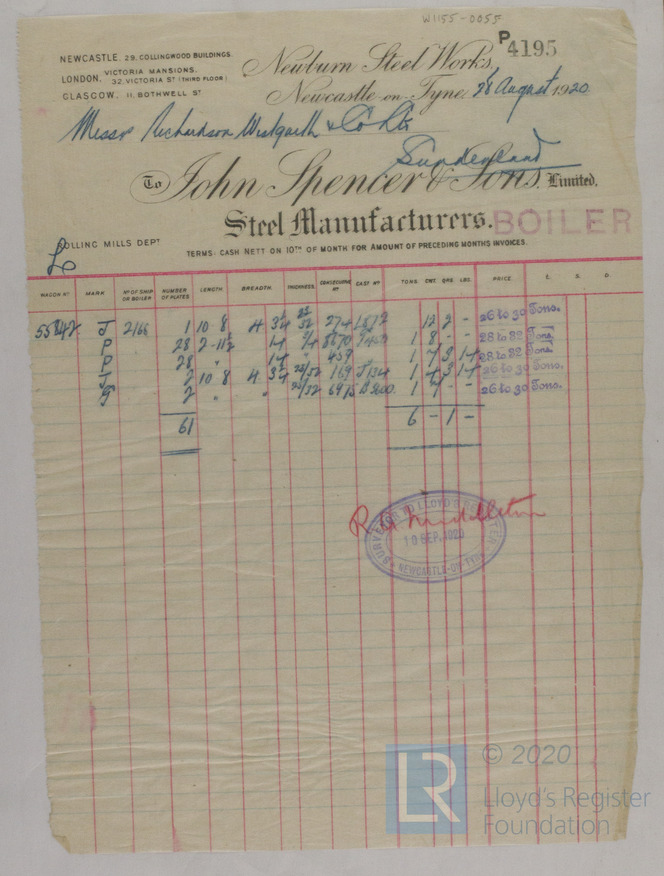 W1155-0055
P4195
NEWCASTLE. 29. COLLINGWOOD BUILDINGS.
LONDON. VICTORIA MANSIONS. 32. VICTORIA ST (THIRD FLOOR)
GLASCOW. 11. BOTHWELL ST
Newburn Steel Works,
Newcastle-on-Tyne 28 August 1920
Messrs Richardson Westgarth & Co Ltd
Sunderland
To John Spencer & Sons, Limited.
Steel Manufacturers.
BOILER
ROLLING MILLS DEPT
TERMS: CASH NETT ON 10TH OF MONTH FOR AMOUNT OF PRECEDING MONTHS INVOICES.
WAGON NO MARK NO OF SHIP OR BOILER NUMBER OF PLATES LENGTH. BREADTH. THICKNESS. CONSECUTIVE NO CAST NO TONS. CWT. QRS. LBS. PRICE £. S. D.
J 2166 1 10 8 4 3 1/4 12 2 - 26 to 30 Tons.
P 28 2-11 1/2 14 1 8 - - 28 to 32 Tons.
P 28 " 14 " 459 1 7 3 14 28 to 32 Tons.
J 2 10 8 4 3 1/4 25/32 169 1 4 3 14 26 to 30 Tons.
2 " " 25/32 6915 1 7 - - 26 to 30 Tons.
61 6 - 1 -
SURVEYOR TO LLOYD'S REGISTER
R. Middleton
10 SEP. 1920
NEWCASTLE-ON-TYNE
LR
© 2020
Lloyd's Register
Foundation